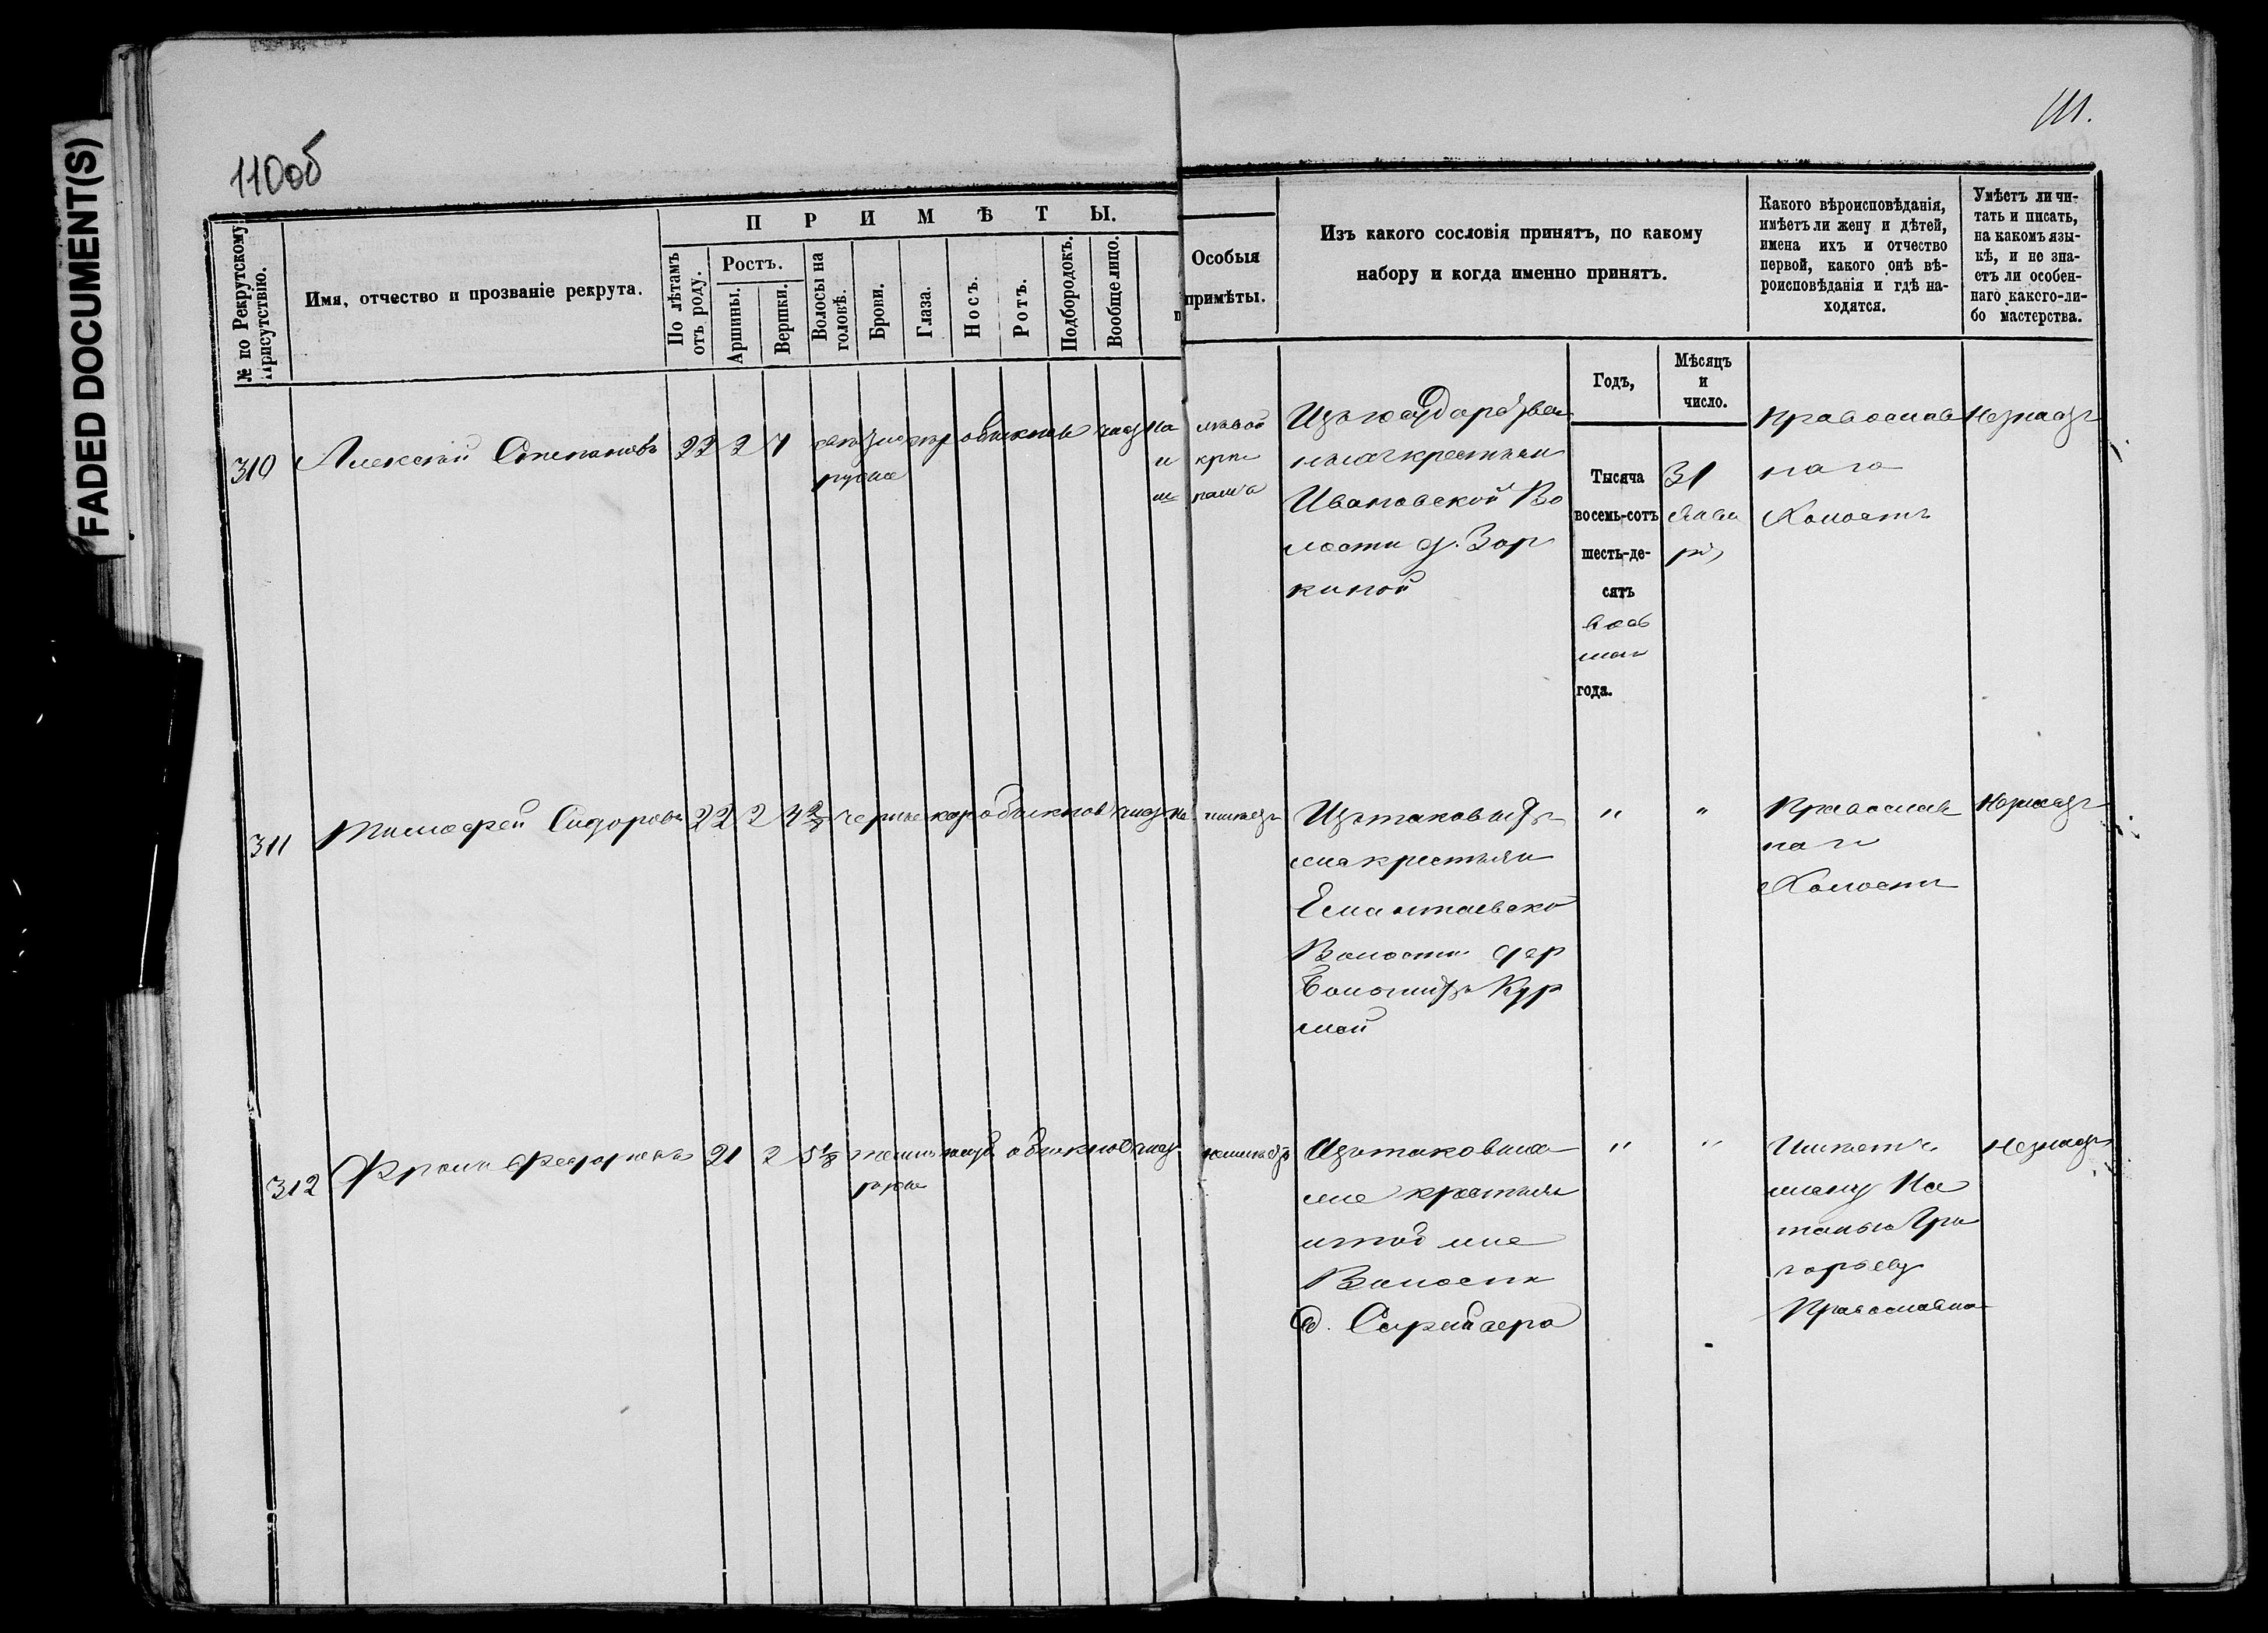 FADED DOCUMENT(S)
110об
111.
№ по Рекрутскому Присутствію.
Имя, отчество и прозваніе рекрута.
ПРИМѢТЫ.
По лѣтамъ отъ роду.
Ростъ.
Аршины.
Вершки.
Волосы на головѣ.
Брови.
Глаза.
Носъ.
Ротъ.
Подбородокъ.
Вообще лицо.
Особыя
примѣты.
Изъ какого сословія принятъ, по какому
набору и когда именно принятъ.
Годъ,
Мѣсяцъ
и
число.
Какого вѣроисповѣданія,
имѣетъ ли жену и дѣтей,
имена ихъ и отчество
первой, какого онѣ вѣ-
роисповѣданія и гдѣ на-
ходятся.
Умѣетъ ли чи-
тать и писать,
на какомъ язы-
кѣ, и не зна-
етъ ли особен-
наго какого-ли-
бо мастерства.
310 Алексѣй Степановъ 22 2 4 обыкнов
русые
Изъ государствен
ныхъ крестьян
Ивановской Во
лости д. Зор
киной
Тысяча
восемь-сотъ
шесть-де-
сятъ
вось
маго
года.
31
Янва
ря
Православ
наго
Холостъ
Незнаетъ
311 Тимофей Сидоровъ 22 2 4 2/8 черные кар обыкнов
Изътаковыхъ
же крестьян
Емантаевско
Волости дер
Курмей
" "
Православ
наго
Холостъ
Незнаетъ
312 Фролъ Федоровъ 21 2 5 1/8 темно обыкнов
русые
неимѣетъ
Изътаковыхъ
же крестьян
итой же
Волости
д.
" "
Имѣетъ
жену На
талью Гри
горьеву
Православна
Незнаетъ